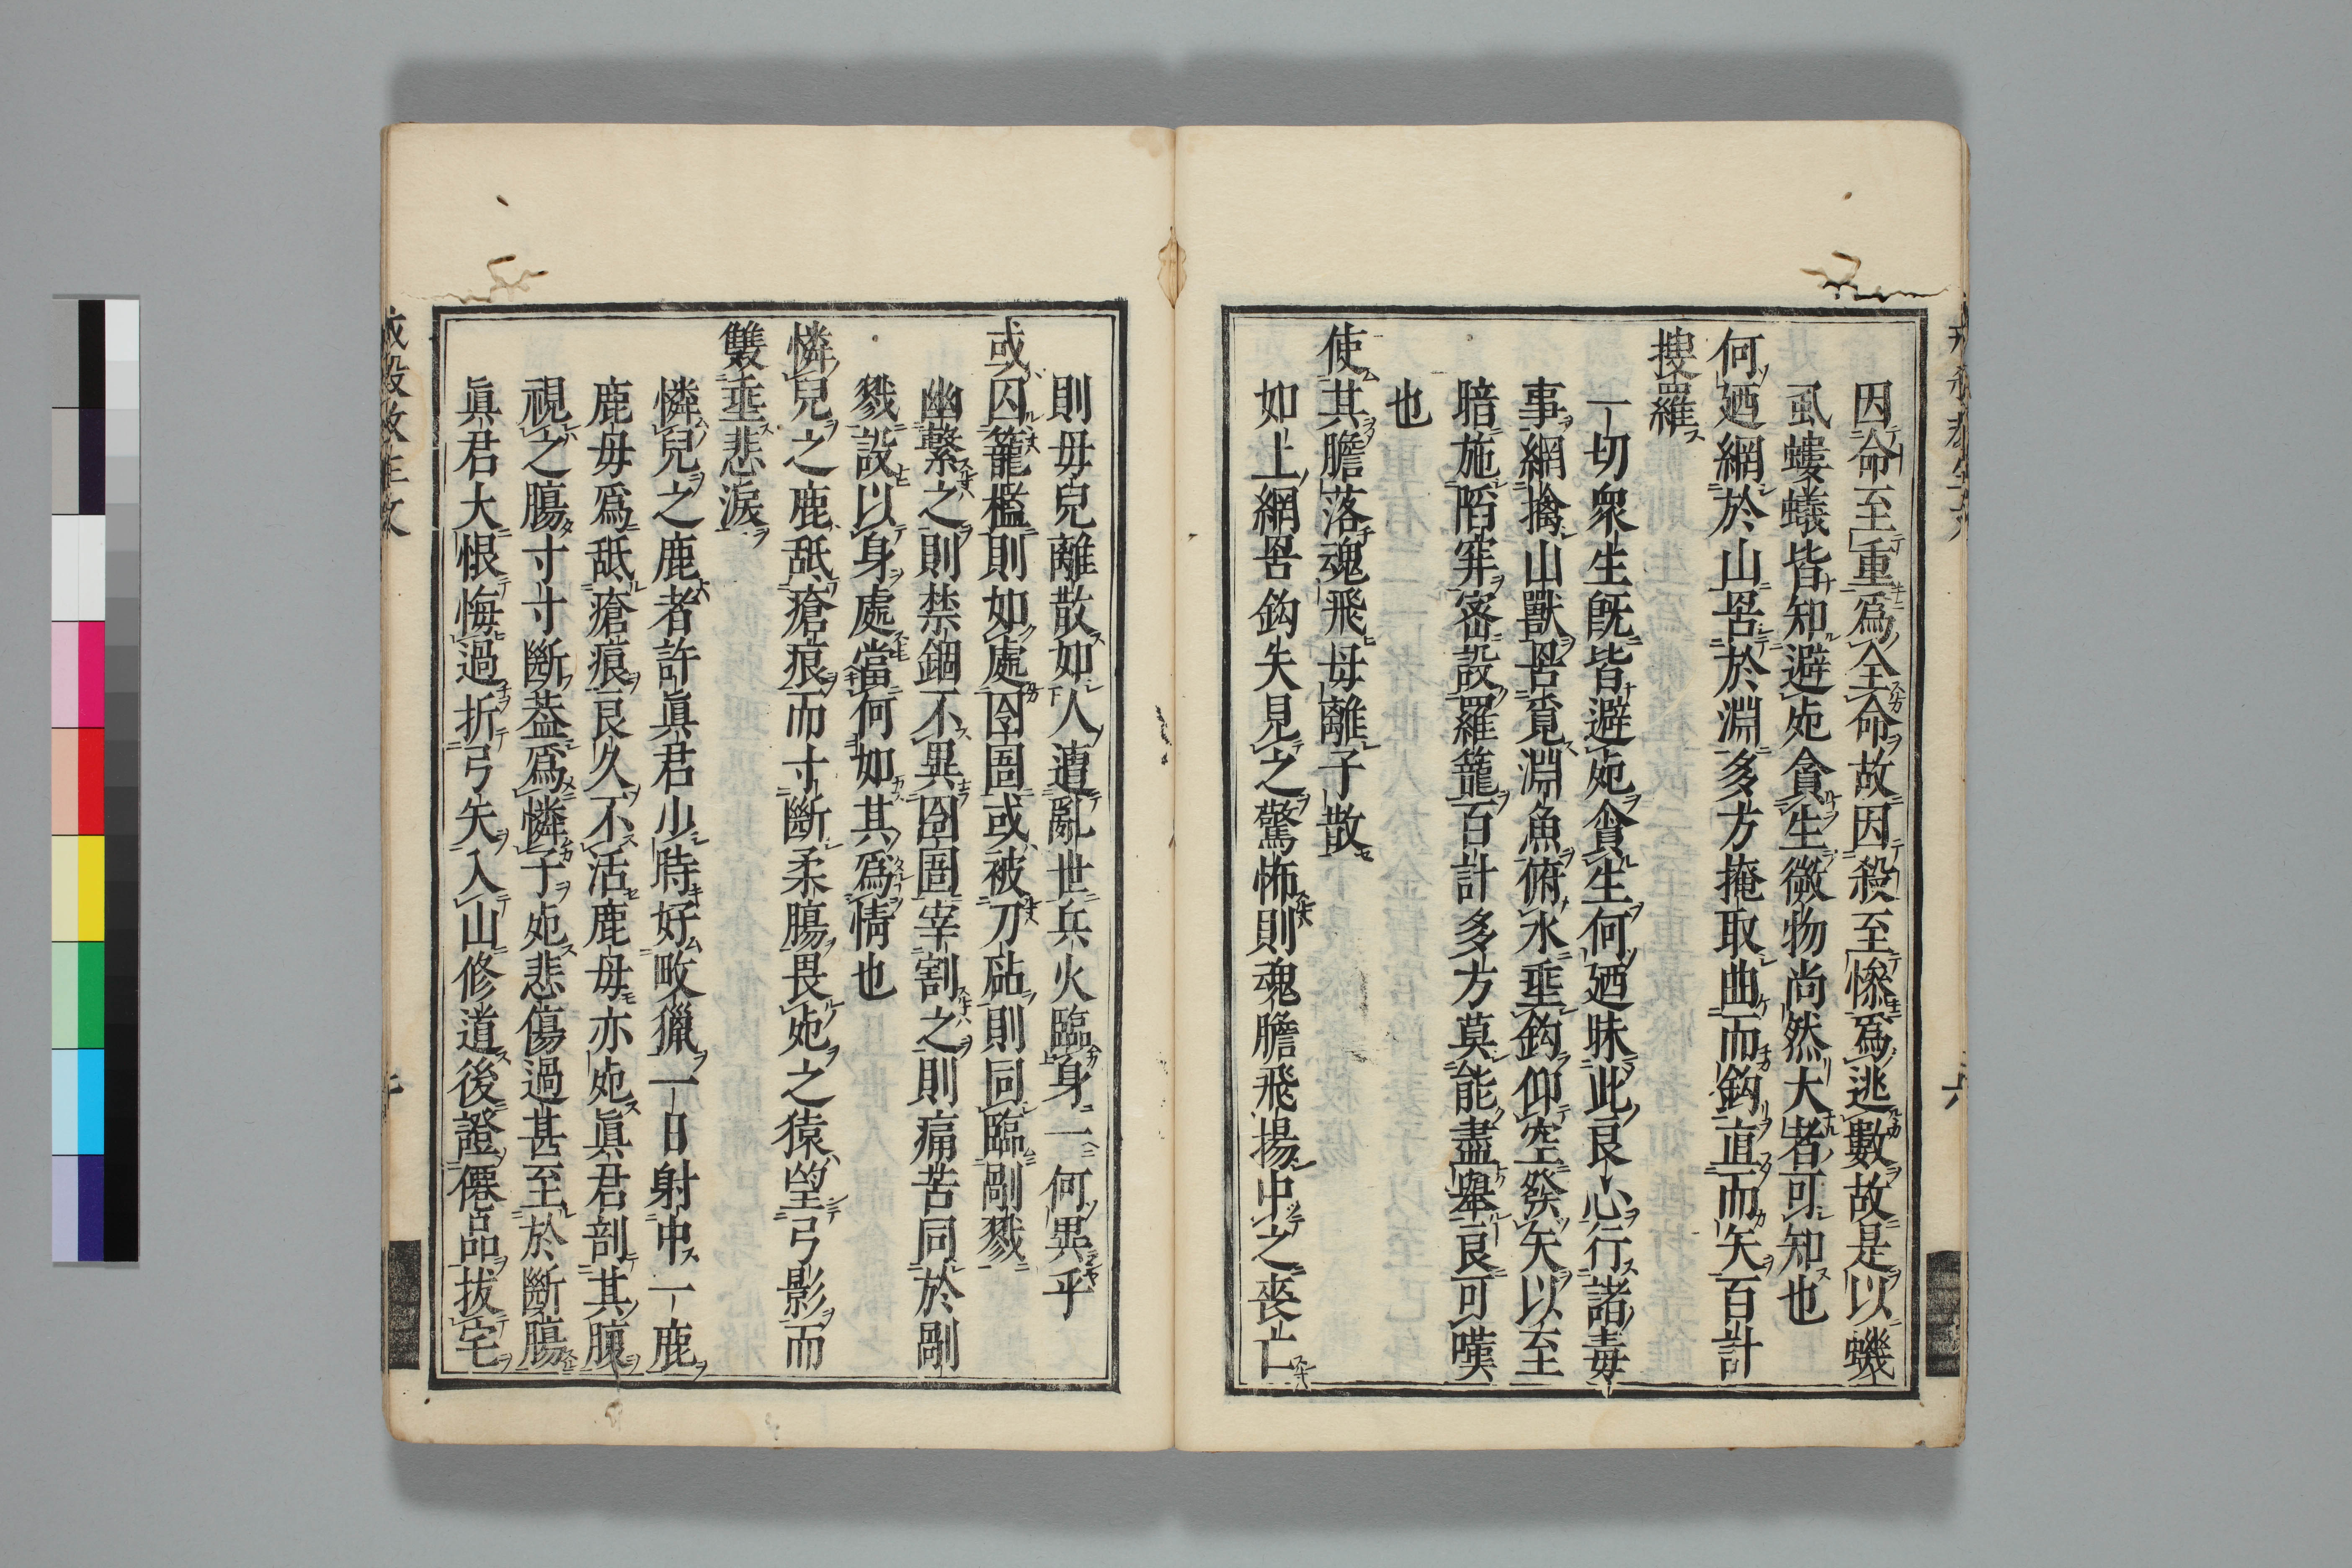 因命至重爲全命故因殺至慘爲逃數故是以蟣
虱螻蟻皆知避死貪生微物尚然大者可知也
何廼網於山罟於淵多方掩取曲而鈎直而矢百計
搜羅
一切衆生旣皆避死貪生何廼昧此良心行諸毒
事網擒山獸罟覓淵魚俯水垂鈎仰空發矢以至
暗施陷穽密設羅籠百計多方莫能盡舉良可嘆
也
使其膽落魂飛母離子散
如上網罟鈎矢見之驚怖則魂膽飛揚中之喪亡
則母兒離散如人遭亂世兵火臨身一何異乎
或囚籠檻則如處囹圄或被刀砧則同臨剮戮
幽繫之則禁錮不異囹圄宰割之則痛苦同於剮
戮設以身處當何如其爲情也
憐兒之鹿舐瘡痕而寸斷柔膓畏死之猿望弓影而
雙垂悲淚
憐兒之鹿者許眞君少時好畋獵一日射中一鹿
鹿母爲舐瘡痕良久不活鹿母亦死眞君剖其腹
視之膓寸寸斷葢爲憐子死悲傷過甚至於斷膓
眞君大恨悔過折弓矢入山修道後證僊品拔宅